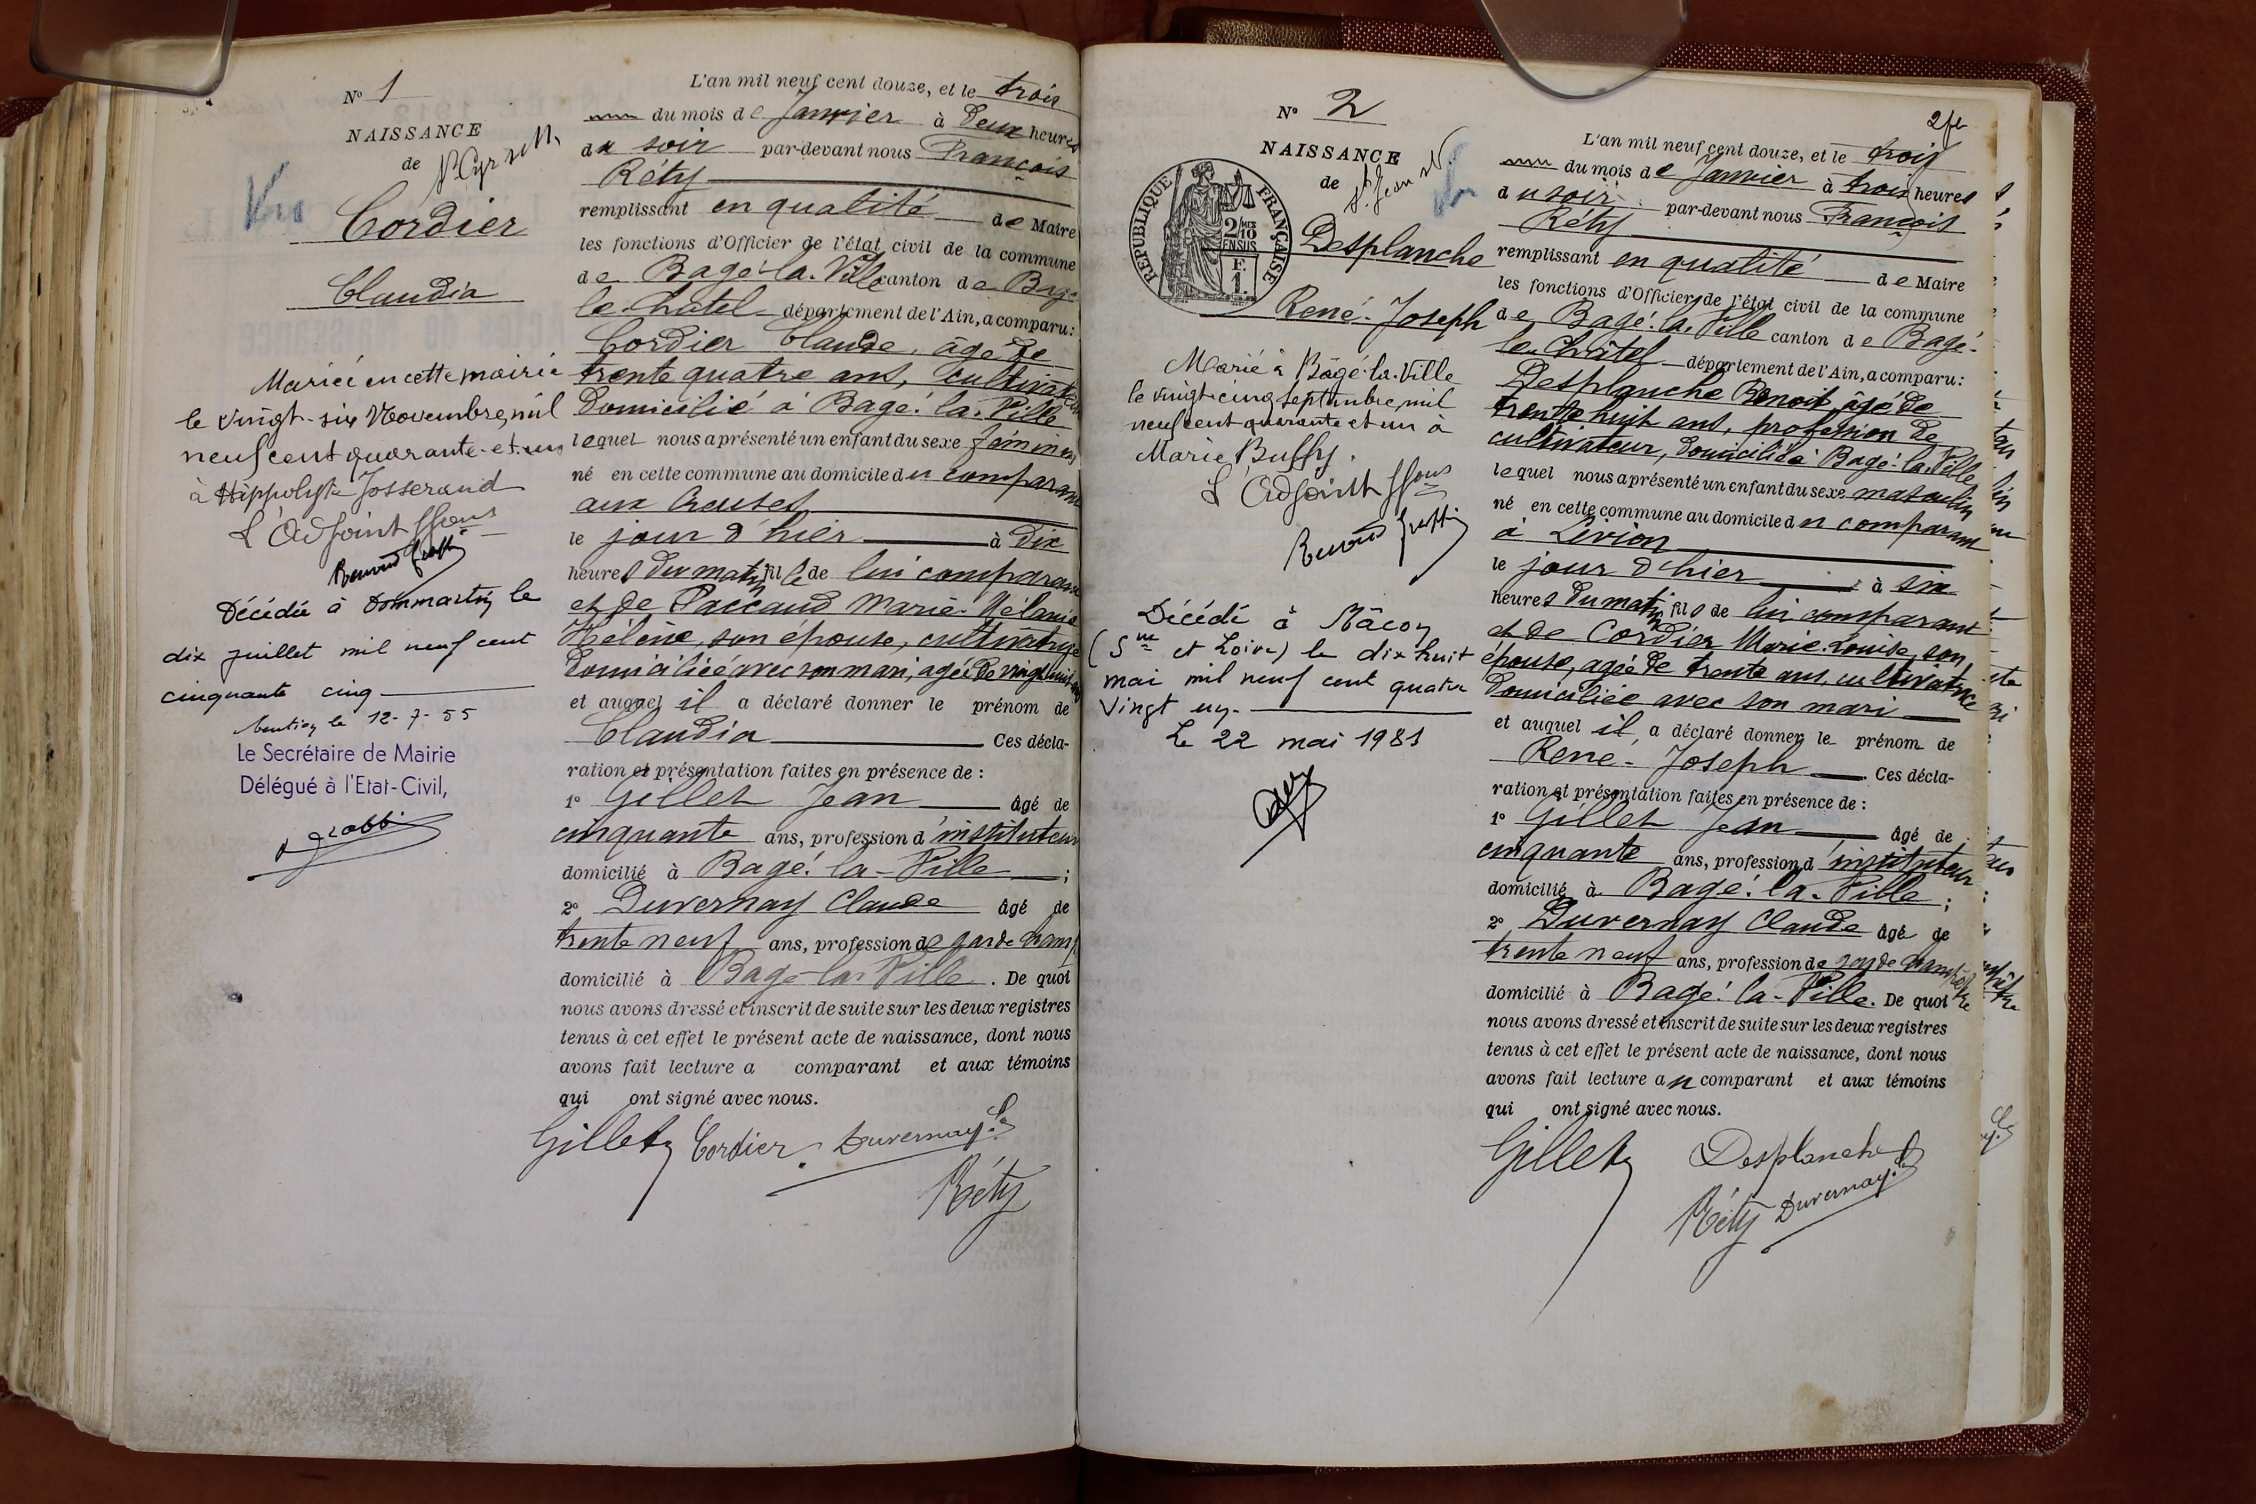 N° 1
NAISSANCE
de
Cordier
Claudia
Mariée en cette mairie
le vingt-six Novembre mil
neuf cent quarante-et-un
à Hippolyte Josserand
L'Adjoint
Décédée à Dommartin le
dix juillet mil neuf cent
cinquante cinq
le 12-7-55
Le Secrétaire de Mairie
Délégué à l'Etat-Civil,
L'an mil neuf cent douze, et le trois
du mois de Janvier à deux heures
du soir par-devant nous François
Réty
remplissant en qualité de Maire
les fonctions d'Officier de l'état civil de la commune
de Bagé-la-Ville canton de Bagé
le Châtel département de l'Ain, a comparu :
Cordier Claude, âgé de
trente quatre ans, cultivateur
domicilié à Bagé-la-Ville
lequel nous a présenté un enfant du sexe féminin
né en cette commune au domicile du comparant
aux Creuses
le jour d'hier à dix
heures du matin fille de lui comparant
et de Paccaud Marie Mélanie
Hélène, son épouse, cultivatrice
domiciliée avec son mari, agée de vingt huit ans
et auquel il a déclaré donner le prénom de
Claudia Ces décla-
ration et présentation faites en présence de :
1° Gillet Jean âgé de
cinquante ans, profession d'instituteur
domicilié à Bagé-la-Ville ;
2° Duvernay Claude âgé de
trente neuf ans, profession de garde champ
domicilié à Bagé-la-Ville. De quoi
nous avons dressé et inscrit de suite sur les deux registres
tenus à cet effet le présent acte de naissance, dont nous
avons fait lecture a comparant et aux témoins
qui ont signé avec nous.
Gillet Cordier Duvernay
Réty
2
N° 2
NAISSANCE
de St Jean
RÉPUBLIQUE FRANÇAISE
2/10
EN SUS
F.
1.
Desplanche
René-Joseph
Marié à Bâgé-la-Ville
le vingt-cinq septembre mil
neuf cent quarante et un à
Marie Buffy.
L'Adjoint
Décédé à Mâcon
(Sne et Loire) le dix huit
mai mil neuf cent quatre
vingt un.
Le 22 mai 1981
L'an mil neuf cent douze, et le trois
du mois de Janvier à trois heures
du soir par-devant nous François
Réty
remplissant en qualité de Maire
les fonctions d'Officier de l'état civil de la commune
de Bagé-la-Ville canton de Bagé-
le-Châtel département de l'Ain, a comparu :
Desplanche Benoit âgé de
trente huit ans, profession de
cultivateur, domicilié à Bagé-la-Ville
lequel nous a présenté un enfant du sexe masculin
né en cette commune au domicile du comparant
à Livion
le jour d'hier à six
heures du matin fils de lui comparant
et de Cordier Marie-Louise, son
épouse, agée de trente ans, cultivatrice
domiciliée avec son mari
et auquel il a déclaré donner le prénom de
René-Joseph Ces décla-
ration et présentation faites en présence de :
1° Gillet Jean âgé de
cinquante ans, profession d'instituteur
domicilié à Bagé-la-Ville ;
2° Duvernay Claude âgé de
trente neuf ans, profession de garde champêtre
domicilié à Bagé-la-Ville. De quoi
nous avons dressé et inscrit de suite sur les deux registres
tenus à cet effet le présent acte de naissance, dont nous
avons fait lecture au comparant et aux témoins
qui ont signé avec nous.
Gillet Desplanche
Réty Duvernay